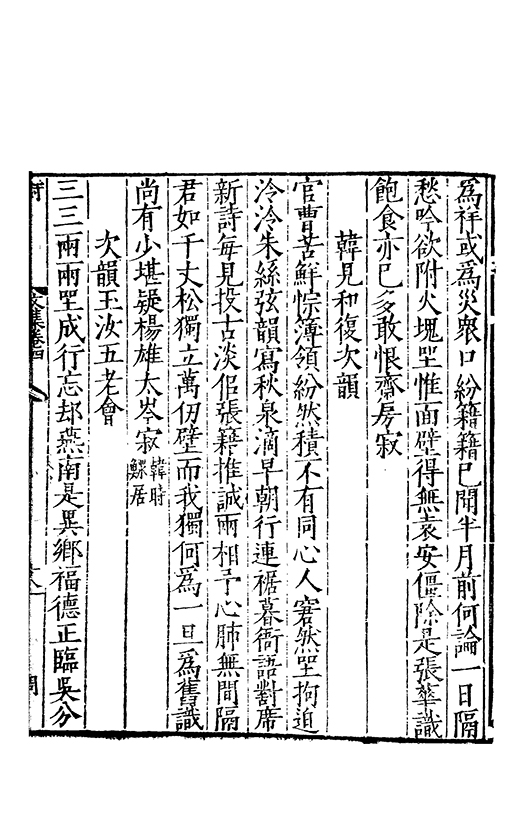 爲祥或爲災衆口紛籍籍已聞半月前何論一日隔
愁吟欲附火塊坐惟面壁得無袁安僵除是張華識
飽食亦已多敢恨齋房寂
韓見和復次韻
官曹苦鮮悰簿領紛然積不有同心人窘然坐拘迫
泠泠朱絲弦韻寫秋泉滴早朝行連裾暮衙語對席
新詩每見投古淡侶張籍推誠兩相予心肺無間隔
君如千丈松獨立萬仞壁而我獨何爲一旦爲舊識
尚有少堪疑楊雄太岑寂韓時鰥居
次韻玉汝五老會
三三兩兩坐成行忘却燕南是異鄉福德正臨吳分
文集卷四